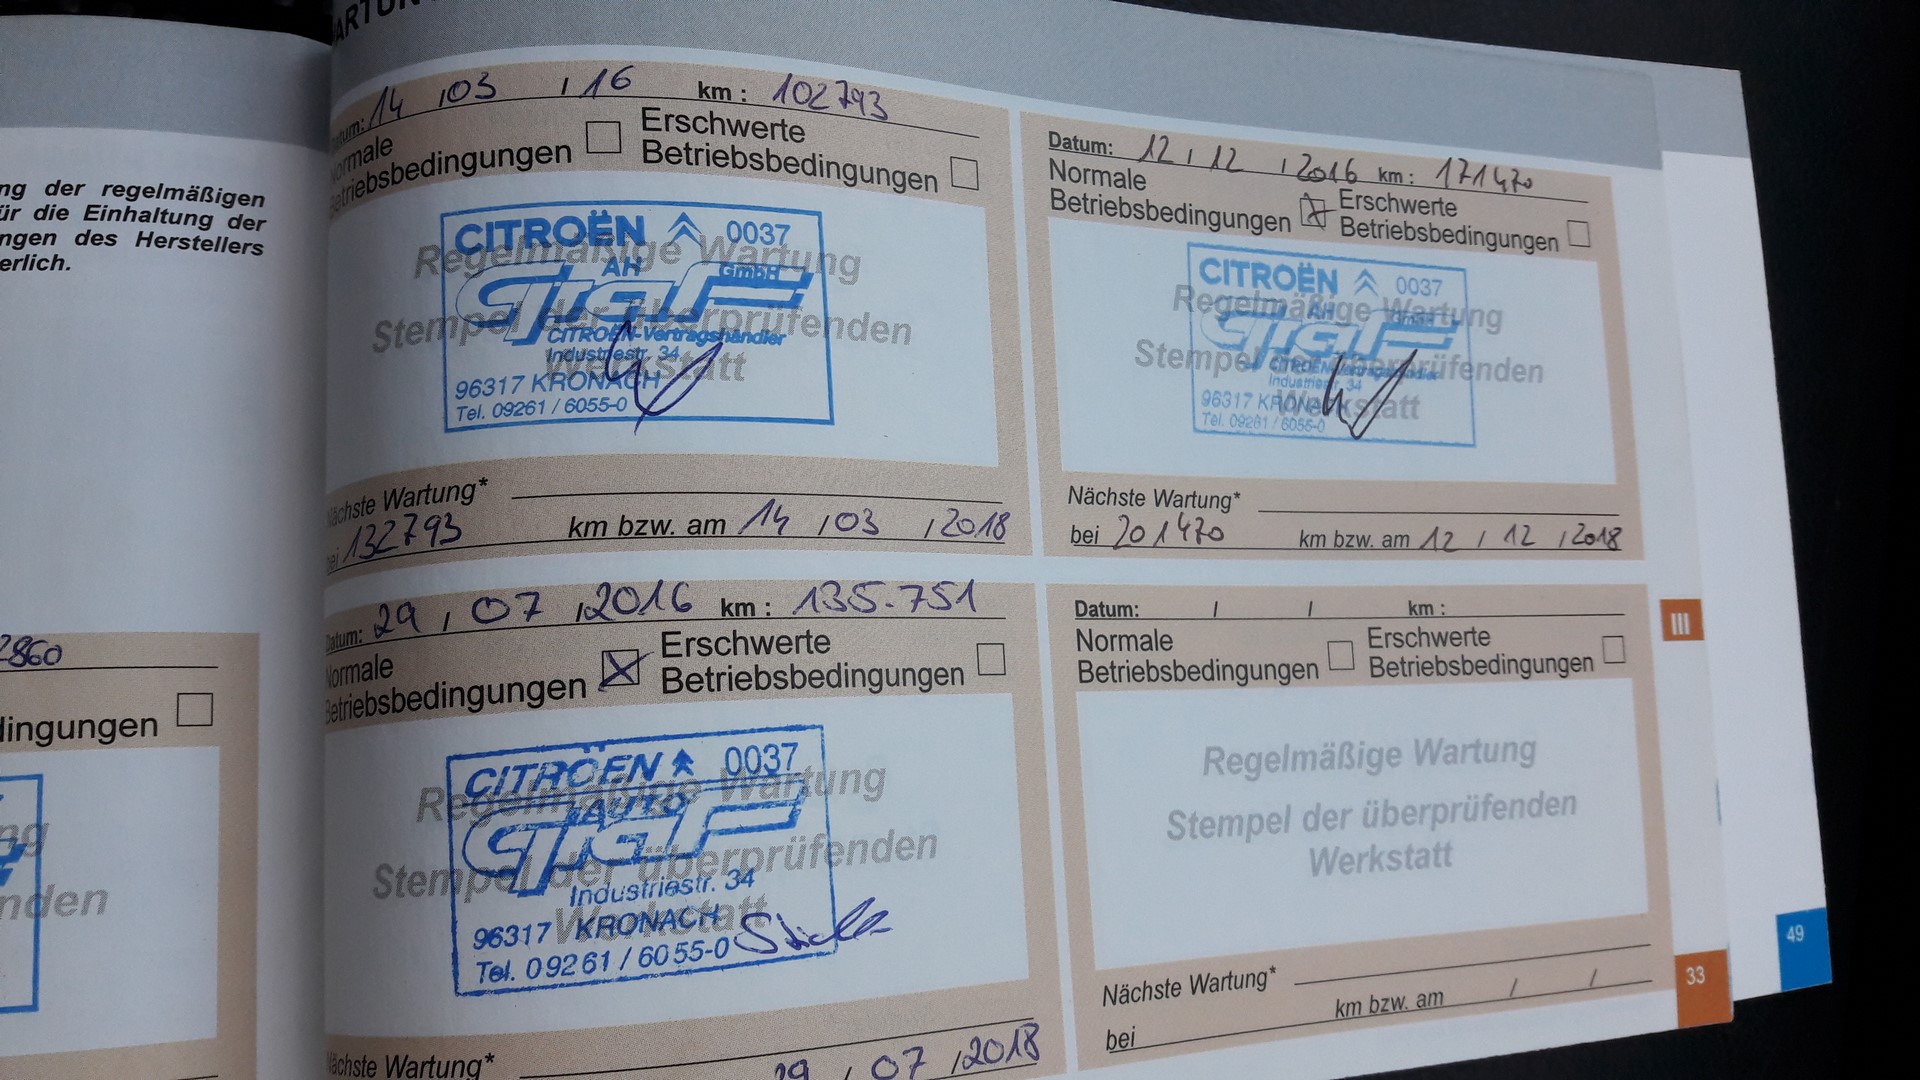 ng der regelmäßigen
ür die Einhaltung der
ngen des Herstellers
erlich.
2860
dingungen
ng
nden
Datum: 14 / 03 / 16 km : 102793
Normale
Betriebsbedingungen
Erschwerte
Betriebsbedingungen
CITROËN 0037
AH Graf GmbH
CITROËN-Vertragshändler
Industriestr. 34
96317 KRONACH
Tel. 09261 / 6055-0
Regelmäßige Wartung
Stempel der überprüfenden
Werkstatt
Nächste Wartung*
bei 132793 km bzw. am 14 / 03 / 2018
Datum: 29 / 07 / 2016 km : 135.751
Normale
Betriebsbedingungen
Erschwerte
Betriebsbedingungen
CITROËN 0037
AUTO
Graf
Industriestr. 34
96317 KRONACH
Tel. 09261 / 6055-0
Regelmäßige Wartung
Stempel der überprüfenden
Werkstatt
Nächste Wartung*
29 / 07 / 2018
Datum: 12 / 12 / 2016 km : 171470
Normale
Betriebsbedingungen
Erschwerte
Betriebsbedingungen
CITROËN 0037
AH Graf GmbH
CITROËN-Vertragshändler
Industriestr. 34
96317 KRONACH
Tel. 09261 / 6055-0
Regelmäßige Wartung
Stempel der überprüfenden
Werkstatt
Nächste Wartung*
bei 201470 km bzw. am 12 / 12 / 2018
Datum: / / km :
Normale
Betriebsbedingungen
Erschwerte
Betriebsbedingungen
Regelmäßige Wartung
Stempel der überprüfenden
Werkstatt
Nächste Wartung*
bei km bzw. am / /
III
33
49